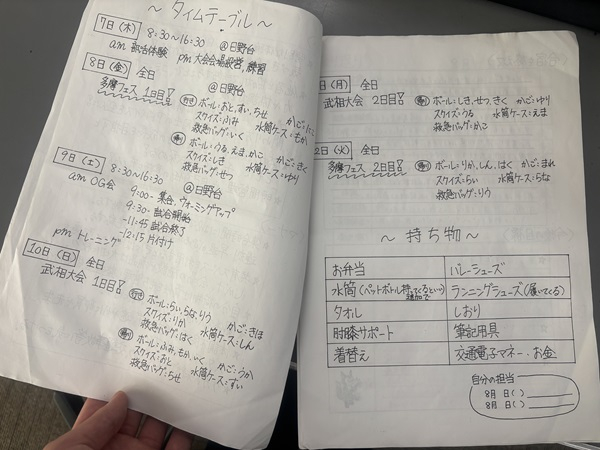 ～ タイムテーブル ～
7日(木) 8:30～16:30 @日野台
am 部活体験 pm 大会会場設営、練習
8日(金) 全日 @日野台
多摩フェス 1日目!
行き ボール:おと,すい,ちせ かご:にこ
スクイズ:ふみ 水筒ケース:もか
救急バッグ:いく
帰り ボール:うる,えま,かこ かご:きく
スクイズ:しき 水筒ケース:ゆり
救急バッグ:せつ
9日(土) 8:30～16:30 @日野台
am OG会 9:00- 集合、ウォーミングアップ
9:30- 試合開始
-11:45 試合終了
-12:15 片付け
pm トレーニング
10日(日) 全日
武相大会 1日目!
行き ボール:らい,らな,りう かご:きほ
スクイズ:りか 水筒ケース:しん
救急バッグ:はく
帰り ボール:ふみ,もか,いく かご:うか
スクイズ:おと 水筒ケース:すい
救急バッグ:ちせ
日(月) 全日
武相大会 2日目!
帰り ボール:しき,せつ,きく かご:ゆり
スクイズ:うる 水筒ケース:えま
救急バッグ:かこ
2日(火) 全日
多摩フェス 2日目!
帰り ボール:りか,しん,はく かご:まれ
スクイズ:らい 水筒ケース:らな
救急バッグ:りう
～ 持ち物 ～
お弁当 バレーシューズ
水筒(ペットボトル持ってくるといい) 追加で ランニングシューズ(履いてくる)
タオル しおり
肘膝サポート 筆記用具
着替え 交通電子マネー・お金
自分の担当
8月 日( )
8月 日( )